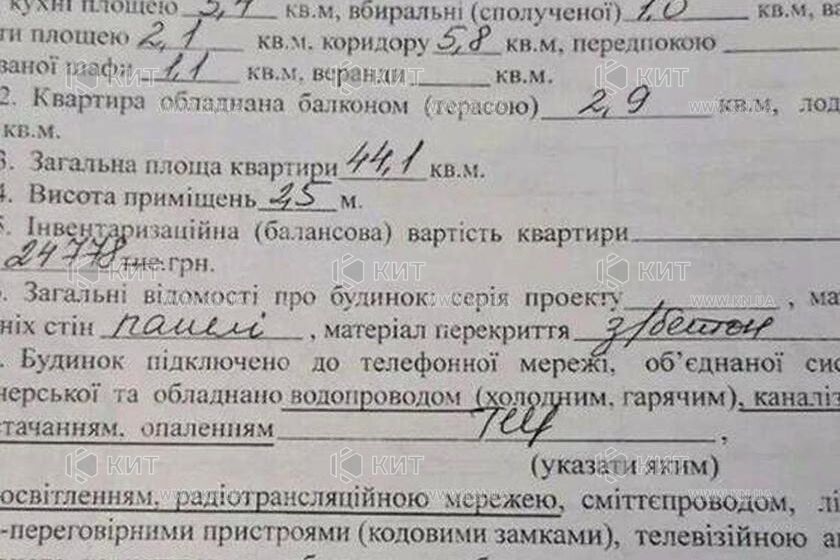 кухні площею 5,4 кв.м, вбиральні (сполученої) 1,0 кв.м, ва
ти площею 2,1 кв.м. коридору 5,8 кв.м, передпокою
ваної шафи 1,1 кв.м, веранди кв.м.
2. Квартира обладнана балконом (терасою) 2,9 кв.м, лод
кв.м.
3. Загальна площа квартири 44,1 кв.м.
4. Висота приміщень 2,5 м.
5. Інвентаризаційна (балансова) вартість квартири
24778 тис.грн.
Загальні відомості про будинок: серія проекту , ма
ніх стін панелі , матеріал перекриття з/бетон
. Будинок підключено до телефонної мережі, об’єднаної сис
нерської та обладнано водопроводом (холодним, гарячим), каналіз
стачанням, опаленням ТЕЦ ,
(указати яким)
освітленням, радіотрансляційною мережею, сміттєпроводом, лі
-переговірними пристроями (кодовими замками), телевізійною а
КИТ
WWW.KN.UA